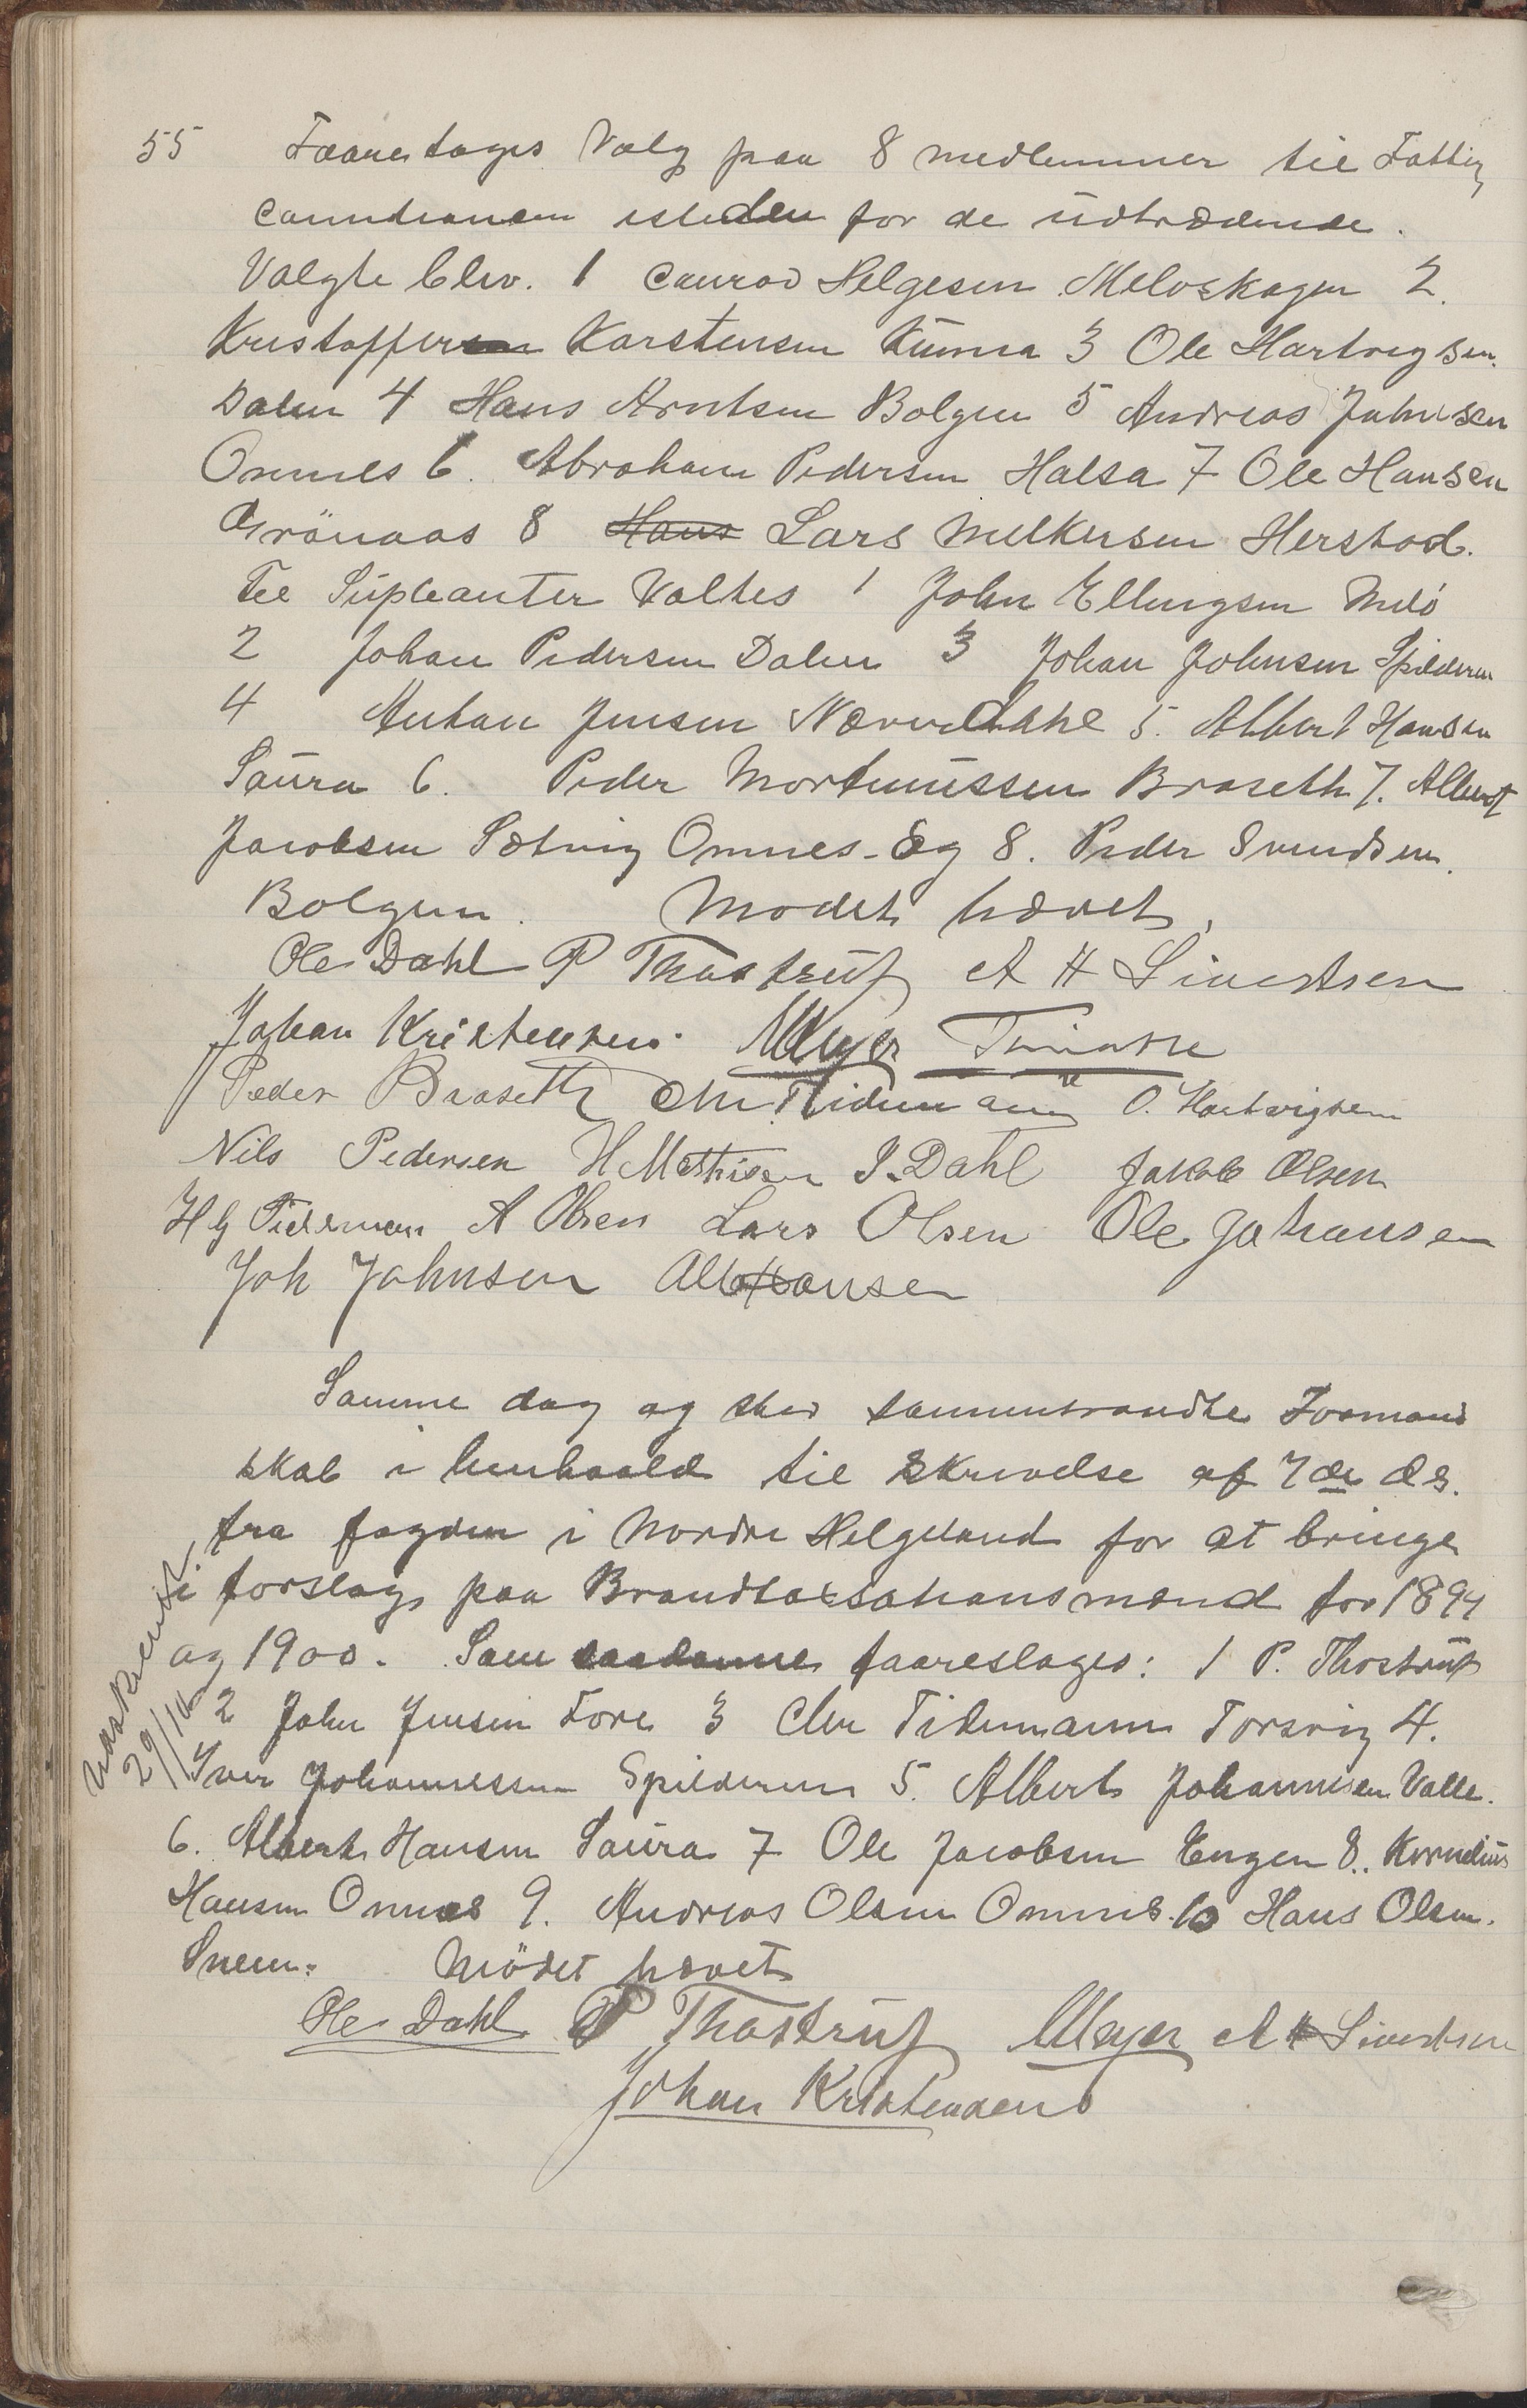 55 Foretages Valg paa 8 medlemmer til Fattig
commissionen isteden for de üdtrædende.
Valgte blev. 1 Conrad Helgesen Meløskagen 2.
Kristoffer Karstensen Künna 3 Ole Hartvigsen.
Dalen 4 Hans Arntsen Bolgen 5 Andreas Johnsen
Onnes 6. Abraham Pedersen Halsa 7 Ole Hansen
Grönaas 8 Hans Lars Melkersen Herstad.
Til Süpleanter Valtes 1 John Ellingsen Melö
2 Johan Pedersen Dalen 3 Johan Johnsen Spilderen
4 Anton Jensen Nævredahl 5. Albert Hansen
Saura 6. Peder Mortinüssen Braseth 7. Albert
Jacobsen Sætvig Onnes. Og 8. Peder Svendsen.
Bolgen. Mødet hævet,
Ole Dahl P Thostrüp A H Sivertsen
Johan Kristensen. Meyer
Peder Braseth Chr. Tidemann O. Hartvigsen
Nils Pedersen H Mathisen I. Dahl Jakob Olsen
H G Tideman A Olsen Lars Olsen Ole Johansen
Joh Johnsen Alb Hansen
Samme dag og sted sammentraadte Formand
skab i henhaald til Skrivelse af 7de ds.
fra fogden i Nordre Helgeland for at bringe
i forslag paa Brandtaxsationsmænd for 1899
og 1900. Som saadanne faareslages: 1 P. Thostrüp
2 John Jensen Fore 3 Chr Tidemann Torsvig 4.
Iver Johannessen Spilderen 5. Albert Johannesen Valle.
6. Albert Hansen Saura 7 Ole Jacobsen Engen 8.. Kornelius
Hansen Onnes 9. Andreas Olsen Onnes. 10 Hans Olsen.
Sneen. Mödet hævet
Ole Dahl P Thostrüp Meyer A H Sivertsen
Johan Kristensen
Udskrevet
29/10